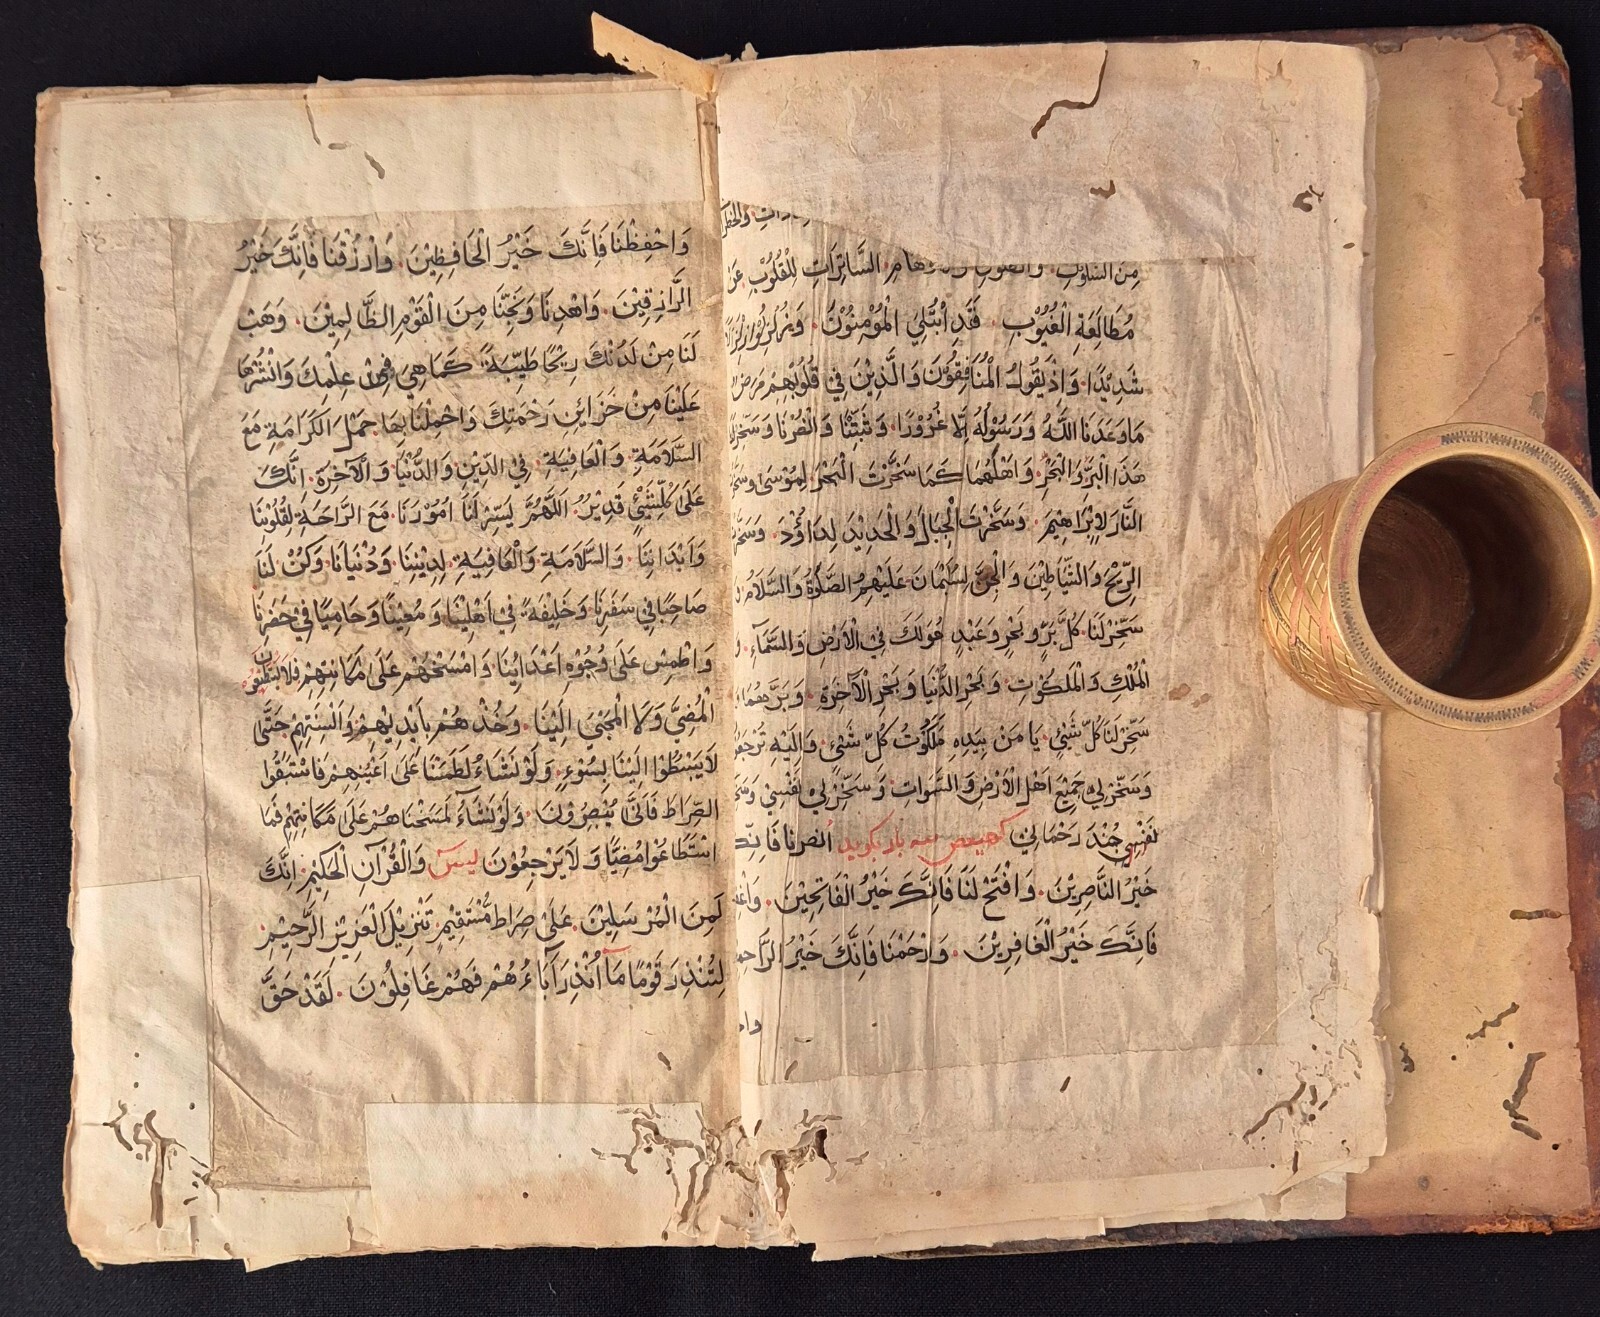 والخطر
من والظنون للقلوب عن
مُطَالَعَةِ الْغُيُوْبِ ۰ فَقَدِ ابْتُلِيَ الْمُؤْمِنُوْنَ ۰ وَزُلْزِلُوْا زِلْزَالًا
شَدِيْدًا ۰ وَاِذْ يَقُوْلُ الْمُنَافِقُوْنَ وَالَّذِيْنَ فِيْ قُلُوْبِهِمْ مَرَضٌ
مَا وَعَدَنَا اللّٰهُ وَرَسُوْلُهُ اِلَّا غُرُوْرًا ۰ وَثَبِّتْنَا وَانْصُرْنَا وَسَخِّرْ لَنَا
هٰذَا الْبَرَّ وَالْبَحْرَ ۰ وَاَهْلَهُمَا كَمَا سَخَّرْتَ الْبَحْرَ لِمُوْسٰى وَسَخَّرْتَ
النَّارَ لِاِبْرَاهِيْمَ ۰ وَسَخَّرْتَ الْجِبَالَ وَالْحَدِيْدَ لِدَاوٗدَ ۰ وَسَخَّرْتَ
الرِّيْحَ وَالشَّيَاطِيْنَ وَالْجِنَّ لِسُلَيْمَانَ عَلَيْهِمُ الصَّلٰوةُ وَالسَّلَامُ
سَخِّرْ لَنَا ۰ كُلَّ بَرٍّ وَبَحْرٍ وَعَبْدٍ هُوَ لَكَ فِي الْاَرْضِ وَالسَّمَآءِ ۰
الْمُلْكِ وَالْمَلَكُوْتِ ۰ وَبَحْرِ الدُّنْيَا وَبَحْرِ الْاٰخِرَةِ ۰ وَبَرَّهُمَا
سَخِّرْ لَنَا كُلَّ شَيْئٍ ۰ يَا مَنْ بِيَدِهِ مَلَكُوْتُ كُلِّ شَيْئٍ ۰ وَاِلَيْهِ تُرْجَعُوْنَ
وَسَخِّرْ لِيْ جَمِيْعَ اَهْلِ الْاَرْضِ وَالسَّمٰوَاتِ ۰ وَسَخِّرْ لِيْ نَفْسِيْ
نَفْسِيْ جُنْدَ رَحْمَانِيْ كهيعص سه بار بگويد اُنْصُرْنَا فَاِنَّكَ
خَيْرُ النَّاصِرِيْنَ ۰ وَافْتَحْ لَنَا فَاِنَّكَ خَيْرُ الْفَاتِحِيْنَ ۰
فَاِنَّكَ خَيْرُ الْغَافِرِيْنَ ۰ وَارْحَمْنَا فَاِنَّكَ خَيْرُ الرَّاحِمِيْنَ
وَاحْفِظْنَا فَاِنَّكَ خَيْرُ الْحَافِظِيْنَ ۰ وَارْزُقْنَا فَاِنَّكَ خَيْرُ
الرَّازِقِيْنَ ۰ وَاهْدِنَا وَنَجِّنَا مِنَ الْقَوْمِ الظَّالِمِيْنَ ۰ وَهَبْ
لَنَا مِنْ لَدُنْكَ رِيْحًا طَيِّبَةً كَمَا هِيَ فِيْ عِلْمِكَ وَانْشُرْهَا
عَلَيْنَا مِنْ خَزَائِنِ رَحْمَتِكَ وَاحْمِلْنَا بِهَا حَمْلَ الْكَرَامَةِ مَعَ
السَّلَامَةِ وَالْعَافِيَةِ ۰ فِي الدِّيْنِ وَالدُّنْيَا وَالْاٰخِرَةِ ۰ اِنَّكَ
عَلٰى كُلِّ شَيْئٍ قَدِيْرٌ ۰ اَللّٰهُمَّ يَسِّرْ لَنَا اُمُوْرَنَا ۰ مَعَ الرَّاحَةِ لِقُلُوْبِنَا
وَاَبْدَانِنَا ۰ وَالسَّلَامَةِ وَالْعَافِيَةِ ۰ لِدِيْنِنَا وَدُنْيَانَا ۰ وَكُنْ لَنَا
صَاحِبًا فِيْ سَفَرِنَا وَخَلِيْفَةً فِيْ اَهْلِيْنَا وَمُعِيْنًا وَحَامِيًا فِيْ حَضَرِنَا
وَاطْمِسْ عَلٰى وُجُوْهِ اَعْدَائِنَا ۰ وَامْسَخْهُمْ عَلٰى مَكَانَتِهِمْ فَلَا يَسْتَطِيْعُوْنَ
الْمُضِيَّ وَلَا الْمَجِيْئَ اِلَيْنَا ۰ وَخُذْهُمْ بِاَيْدِيْهِمْ وَاَلْسِنَتِهِمْ حَتّٰى
لَا يَبْسُطُوْا اِلَيْنَا بِسُوْءٍ ۰ وَلَوْ نَشَاءُ لَطَمَسْنَا عَلٰى اَعْيُنِهِمْ فَاسْتَبَقُوا
الصِّرَاطَ فَاَنّٰى يُبْصِرُوْنَ ۰ وَلَوْ نَشَاءُ لَمَسَخْنَاهُمْ عَلٰى مَكَانَتِهِمْ فَمَا
اسْتَطَاعُوْا مُضِيًّا وَلَا يَرْجِعُوْنَ يٰسٓ وَالْقُرْاٰنِ الْحَكِيْمِ ۰ اِنَّكَ
لَمِنَ الْمُرْسَلِيْنَ ۰ عَلٰى صِرَاطٍ مُسْتَقِيْمٍ ۰ تَنْزِيْلَ الْعَزِيْزِ الرَّحِيْمِ ۰
لِتُنْذِرَ قَوْمًا مَا اُنْذِرَ اٰبَاءُهُمْ فَهُمْ غَافِلُوْنَ ۰ لَقَدْ حَقَّ